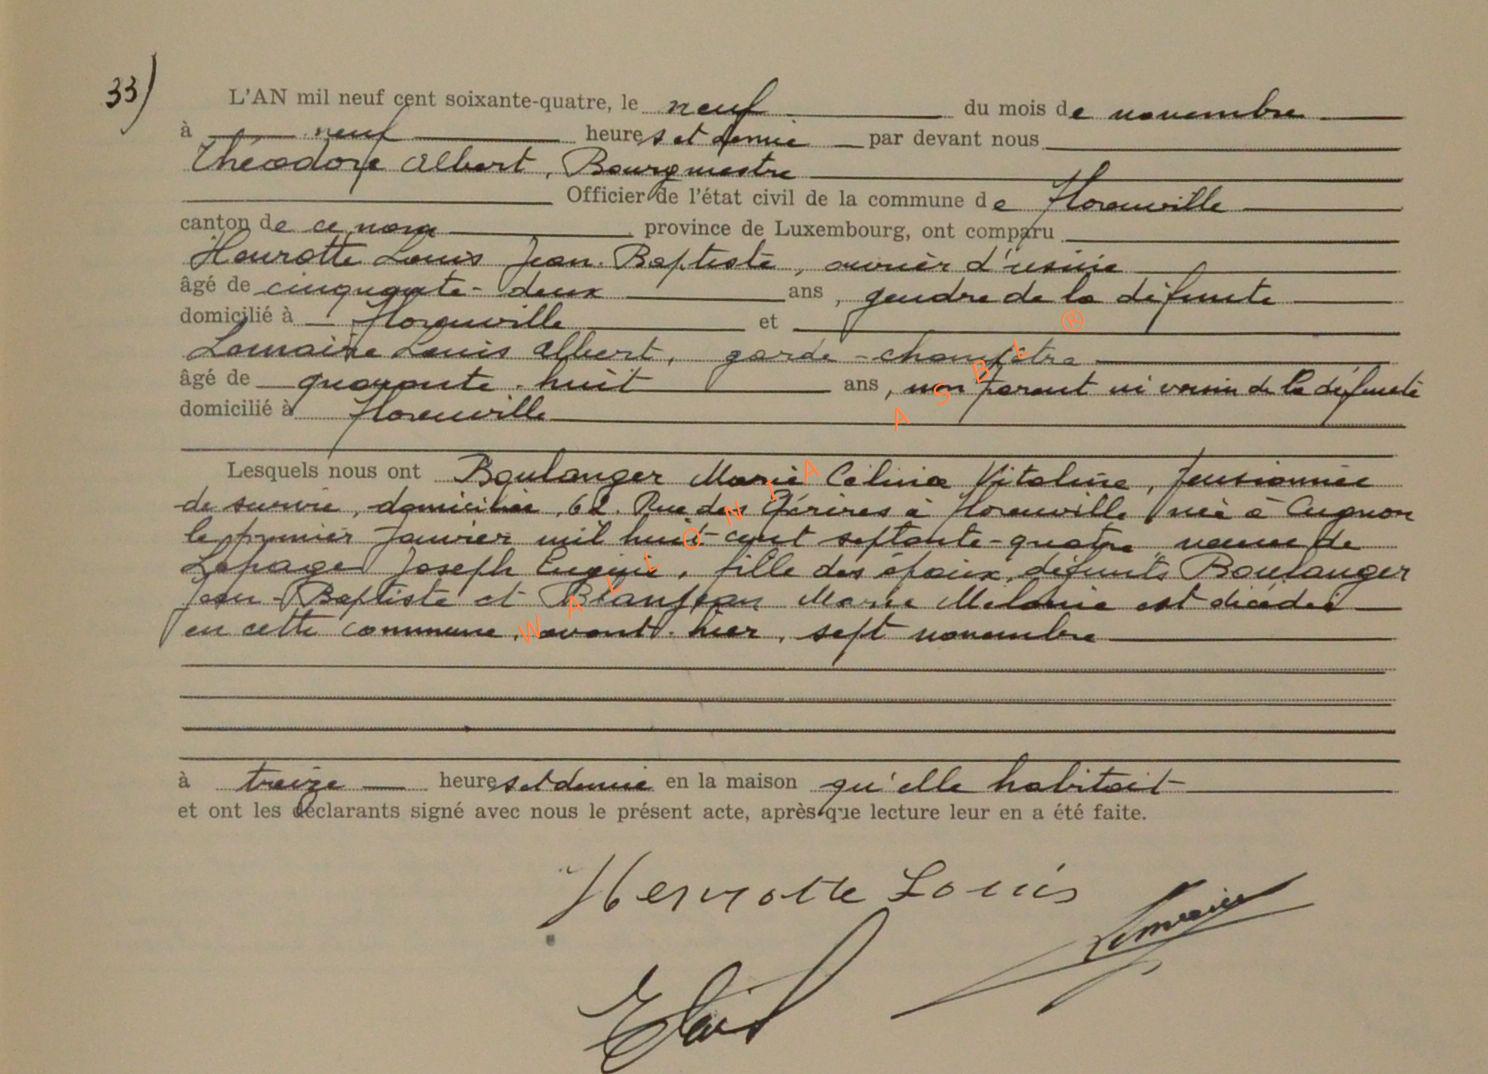 33)
L'AN mil neuf cent soixante-quatre, le neuf du mois de novembre
à neuf heures et demie par devant nous
Théodore Albert, Bourgmestre
Officier de l'état civil de la commune de Florenville
canton de ce nom province de Luxembourg, ont comparu
Henrotte Louis Jean-Baptiste, ouvrier d'usine
âgé de cinquante-deux ans, gendre de la défunte
domicilié à Florenville et
Lemaire Louis Albert, garde-champêtre
âgé de quarante-huit ans, non parent ni voisin de la défunte
domicilié à Florenville
Lesquels nous ont Boulanger Marie Célinie Vitaline, pensionnée
de survie, domiciliée, 62 Rue des à Florenville née à Cugnon
le premier Janvier mil huit-cent septante-quatre, veuve de
Lepage Joseph Eugène, fille des époux défunts Boulanger
Jean-Baptiste et Marie Mélanie est décédée
en cette commune, avant-hier, sept novembre
à treize heures et demie en la maison qu'elle habitait
et ont les déclarants signé avec nous le présent acte, après que lecture leur en a été faite.
Henrotte Louis
Lemaire
WALLONIA ASBL ®